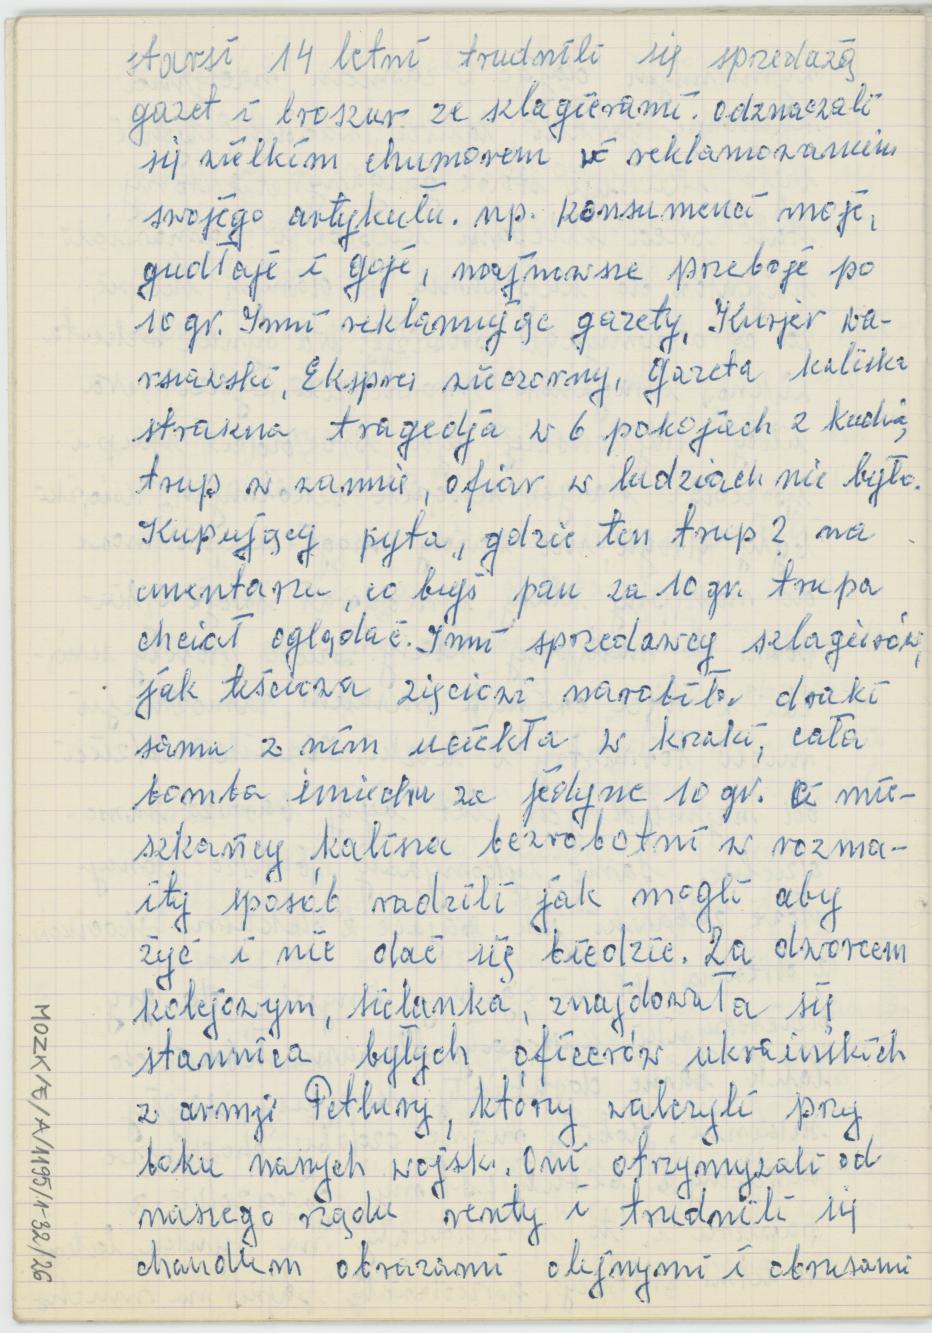 starsi 14 letni trudnili się sprzedażą
gazet i broszur ze szlagierami. odznaczali
się wielkim chumorem w reklamowaniu
swojego artykułu. np. konsumenci moje,
gudłaje i goje, najnowsze przeboje po
10 gr. Inni reklamując gazety, Kurjer wa-
rszawski, Ekspres wieczorny, Gazeta kaliska
straszna tragedja w 6 pokojach z kuchią,
trup w wannie, ofiar w ludziach nie było.
Kupujący pyta, gdzie ten trup? na
cmentarzu, co byś pan za 10 gr. trupa
chciał oglądać. Inni sprzedawcy szlagierów,
jak teściowa zięciowi narobiła draki
sama z nim uciekła w krzaki, cała
bomba śmiechu za jedyne 10 gr. a mie-
szkańcy kalisza bezrobotni w rozma-
ity sposób radzili jak mogli aby
żyć i nie dać się biedzie. Za dworcem
kolejowym, sielanka, znajdowała się
stannica byłych oficerów ukraińskich
z armji Petlury, którzy walczyli przy
boku naszych wojsk. Oni otrzymywali od
naszego rządu renty i trudnili się
chandlem obrazami olejnymi i obrusami
MOZK/E/A/1195/1-32/26